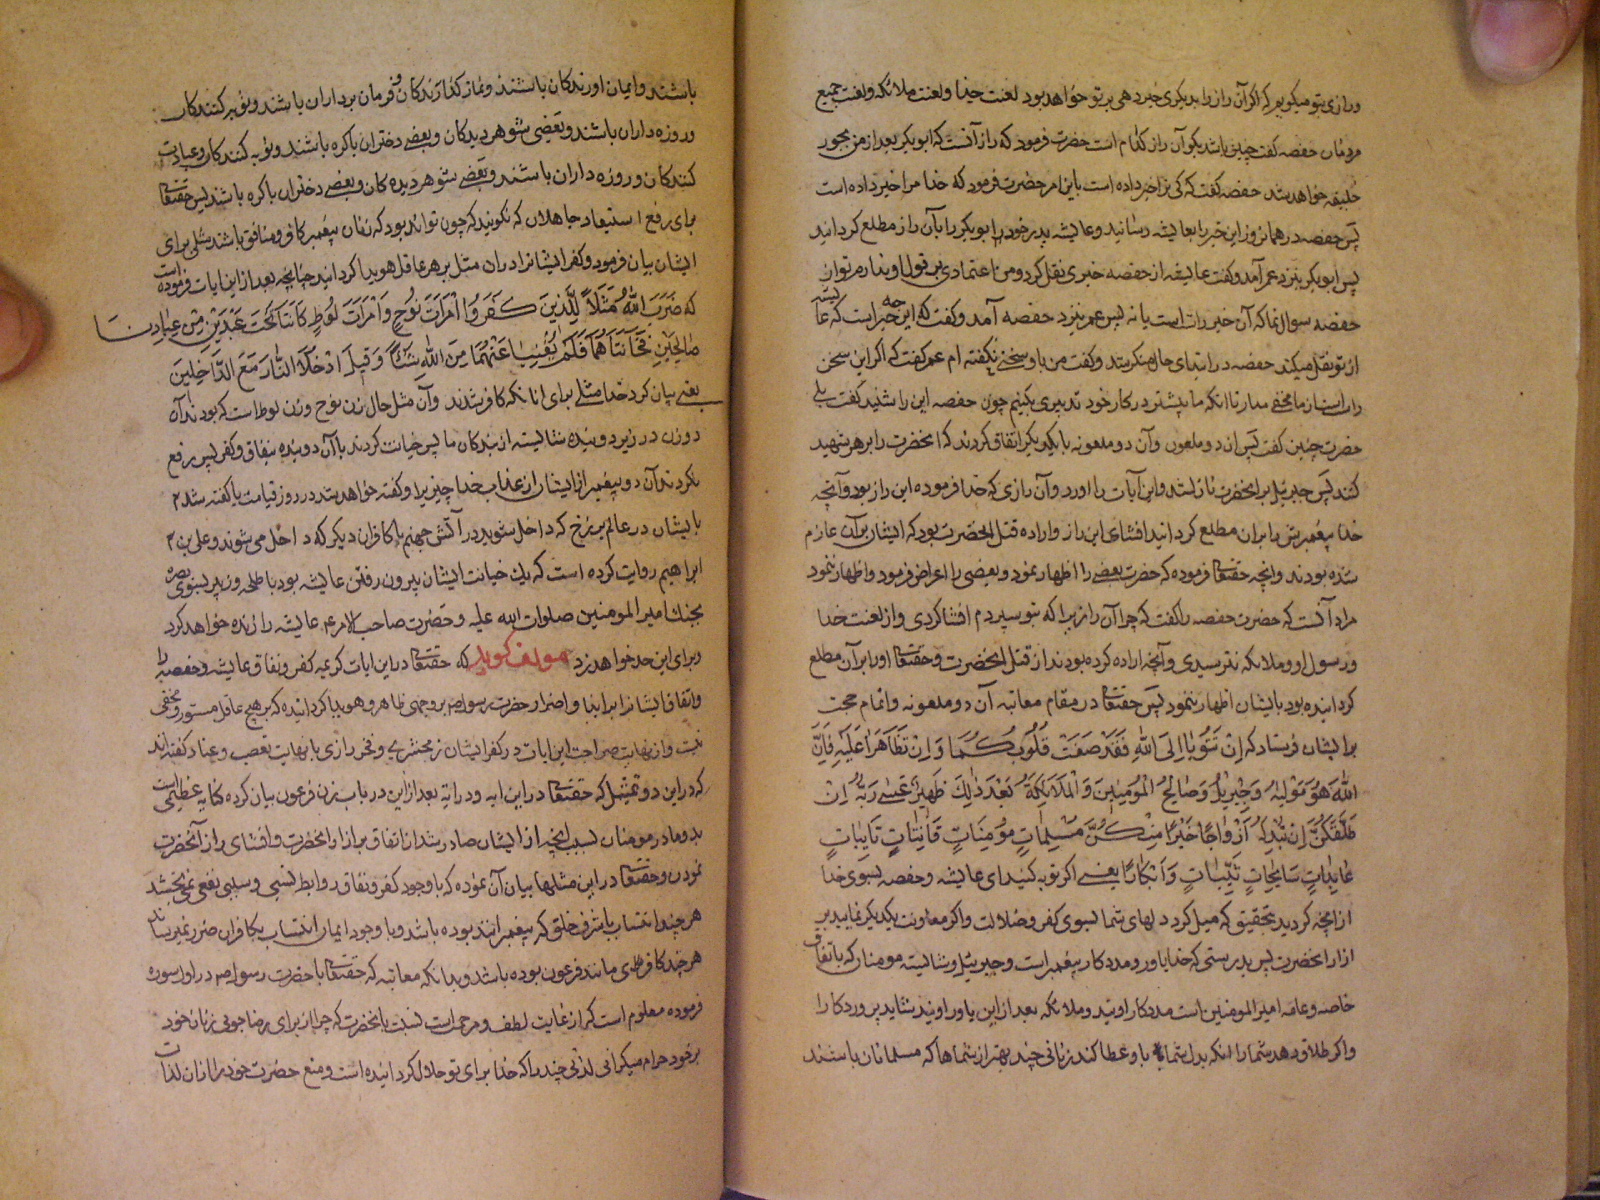 ورازی بتو میکویم که اگر آن راز را بدیکری خبر دهی بر تو خواهد بود لعنت خدا و لعنت ملائکه و لعنت جمیع
مردمان حفصه کفت چنین باشد بکو آن راز کدام است حضرت فرمود که راز آنست که ابوبکر بعد از من بجور
خلیفه خواهد شد حفصه کفت که کی ترا خبر داده است باین امر حضرت فرمود که خدا مرا خبر داده است
پس حفصه در همان روز این خبر را بعایشه رسانید و عایشه پدر خود ابوبکر را بآن راز مطلع کردانید
پس ابوبکر بنزد عمر آمد و کفت عایشه از حفصه خبری نقل کرد و من اعتمادی بر قول او ندارم تو از
حفصه سوال نما که آن خبر راست یا نه پس عمر بنزد حفصه آمد و کفت که این چه خبر است که عایشه
از تو نقل میکند حفصه در ابتدای حال منکر شد و کفت من باو سخنی نکفته ام عمر کفت که اکر این سخن
راست از ما مخفی مدار تا آنکه ما پیشتر در کار خود تدبیری بکنیم چون حفصه این را شنید کفت بلی
حضرت چنین کفت پس آن دو ملعون و آن دو ملعونه با یکدیکر اتفاق کردند که آنحضرت را بزهر شهید
کنند پس جبرئیل بر آنحضرت نازل شد و این آیات را اورد و آن رازی که خدا فرموده این راز بود و آنچه
خدا پیغمبرش را بران مطلع کردانید افشای این راز و اراده قتل آنحضرت بود که ایشان بر آن عازم
شده بودند و آنچه حقتعا فرموده که حضرت بعضی را اظهار نمود و بعضی را اعراض فرمود و اظهار ننمود
مراد آنست که حضرت حفصه را کفت که چرا آن رازیرا که بتو سپردم افشا کردی و از لعنت خدا
و رسول او و ملائکه نترسیدی و آنچه اراده کرده بودند از قتل آنحضرت و حقتعا او را بر آن مطلع
کردانیده بود بایشان اظهار ننمود پس حقتعا در مقام معاتبه آن دو ملعونه و اتمام حجت
بر ایشان فرستاد که اِنْ تَتُوبَا اِلَی اللهِ فَقَدْ صَغَتْ قُلُوبُکُمَا وَ اِنْ تَظَاهَرَا عَلَیْهِ فَاِنَّ
اللهَ هُوَ مَوْلٰیهُ وَ جِبْرِیلُ وَ صَالِحُ الْمُؤْمِنِینَ وَ الْمَلَائِکَةُ بَعْدَ ذٰلِکَ ظَهِیرٌ عَسٰی رَبُّهُ اِنْ
طَلَّقَکُنَّ اَنْ یُبْدِلَهُ اَزْوَاجًا خَیْرًا مِنْکُنَّ مُسْلِمَاتٍ مُؤْمِنَاتٍ قَانِتَاتٍ تَائِبَاتٍ
عَابِدَاتٍ سَائِحَاتٍ ثَیِّبَاتٍ وَ اَبْکَارًا یعنی اکر توبه کنید ای عایشه و حفصه بسوی خدا
از آنچه کردید بتحقیق که میل کرد دلهای شما بسوی کفر و ضلالت و اکر معاونت یکدیکر نمایید بر
ازار آنحضرت پس بدرستی که خدا یاور و مددکار پیغمبر است و جبرئیل و شایسته مومنان که باتفاق
خاصه و عامه امیر المومنین است مددکار اویند و ملائکه بعد از این یاور اویند شاید پروردکار او
اکر طلاق دهد شما را آنکه بدل شما باو عطا کند زنانی چند بهتر از شماها که مسلمانان باشند
باشند و ایمان اورندکان باشند و نماز کذارندکان و فرمان برداران باشند و توبه کنندکار
و روزه داران باشند و بعضی شوهر دیدکان و بعضی دختران باکره باشند و توبه کنندکار و عبادت
کنندکان و روزه داران باشند و بعضی شوهر دیده کان و بعضی دختران باکره باشند پس حقتعا
برای رفع استبعاد جاهلان که نکویند که چون تواند بود که زنان پیغمبر کافر و منافق باشند مثلی برای
ایشان بیان فرمود و کفر ایشانرا در ان مثل بر هر عاقل هویدا کردانید چنانچه بعد از این ایات فرموده است
که ضَرَبَ اللهُ مَثَلاً لِلَّذِینَ کَفَرُوا امْرَاَتَ نُوحٍ وَ امْرَاَتَ لُوطٍ کَانَتَا تَحْتَ عَبْدَیْنِ مِنْ عِبَادِنَا
صَالِحَیْنِ فَخَانَتَاهُمَا فَلَمْ یُغْنِیَا عَنْهُمَا مِنَ اللهِ شَیْئًا وَ قِیلَ ادْخُلَا النَّارَ مَعَ الدَّاخِلِینَ
یعنی بیان کرد خدا مثلی برای انانکه کافر شدند و آن مثل حال زن نوح و زن لوط است که بودند آن
دو زن در زیر دو بنده شایسته از بندکان ما پس خیانت کردند با آن دو بنده بنفاق و کفر پس رفع
نکردند آن دو پیغمبر از ایشان از عذاب خدا چیزیرا و کفته خواهد شد در روز قیامت یا کفته شد
بایشان در عالم برزخ که داخل شوید در آتش جهنم با کافران دیکر که داخل می شوند و علی بن
ابراهیم روایت کرده است که یک خیانت ایشان بیرون رفتن عایشه بود با طلحه و زبیر بسوی بصره
بجنک امیر المومنین صلوات الله علیه و حضرت صاحب الامر ع عایشه را زنده خواهد کرد
و برای این حد خواهد زد مولف کوید که حقتعا در این ایات کریمه کفر و نفاق عایشه و حفصه را
و اتفاق ایشانرا بر ایذا و اضرار حضرت رسول ص بر وجهی ظاهر و هویدا کردانیده که بر هیچ عاقل مستور و مخفی
نیست و از نهایت صراحت این ایات در کفر ایشان زمخشری و فخر رازی با نهایت تعصب و عناد کفته اند
که در این دو تمثیل که حقتعا در این ایه و در ایه بعد از این در باب زن فرعون بیان کرده کنایه عظیمی است
بدو مادر مومنان بسبب آنچه از ایشان صادر شد از اتفاق بر ازار آنحضرت و افشای راز آنحضرت
نمودن و حقتعا در این مثلها بیان آن نموده که با وجود کفر و نفاق روابط نسبی و سببی نفع نمی بخشد
هر چند انتساب باشرف خلق که پیغمبرانند بوده باشد و با وجود ایمان انتساب بکافران ضرر نمیرساند
هر چند کافری مانند فرعون بوده باشد و بدانکه معاتبه که حقتعا با حضرت رسول ص در اول سوره
فرموده معلوم است که از غایت لطف و مرحمت است نسبت بآنحضرت که چرا از برای رضا جویی زنان خود
بر خود حرام میکرانی لذتی چند را که خدا برای تو حلال کردانیده است و منع حضرت خود را از ان لذات